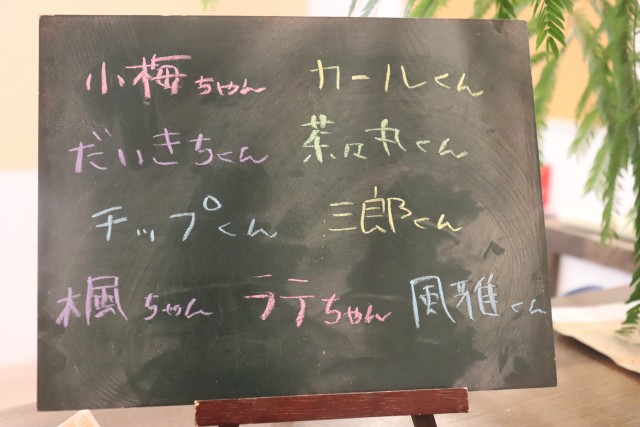 小梅ちゃん カールくん
だいきちくん 茶々丸くん
チップくん 三郎くん
楓ちゃん ラテちゃん 風雅くん